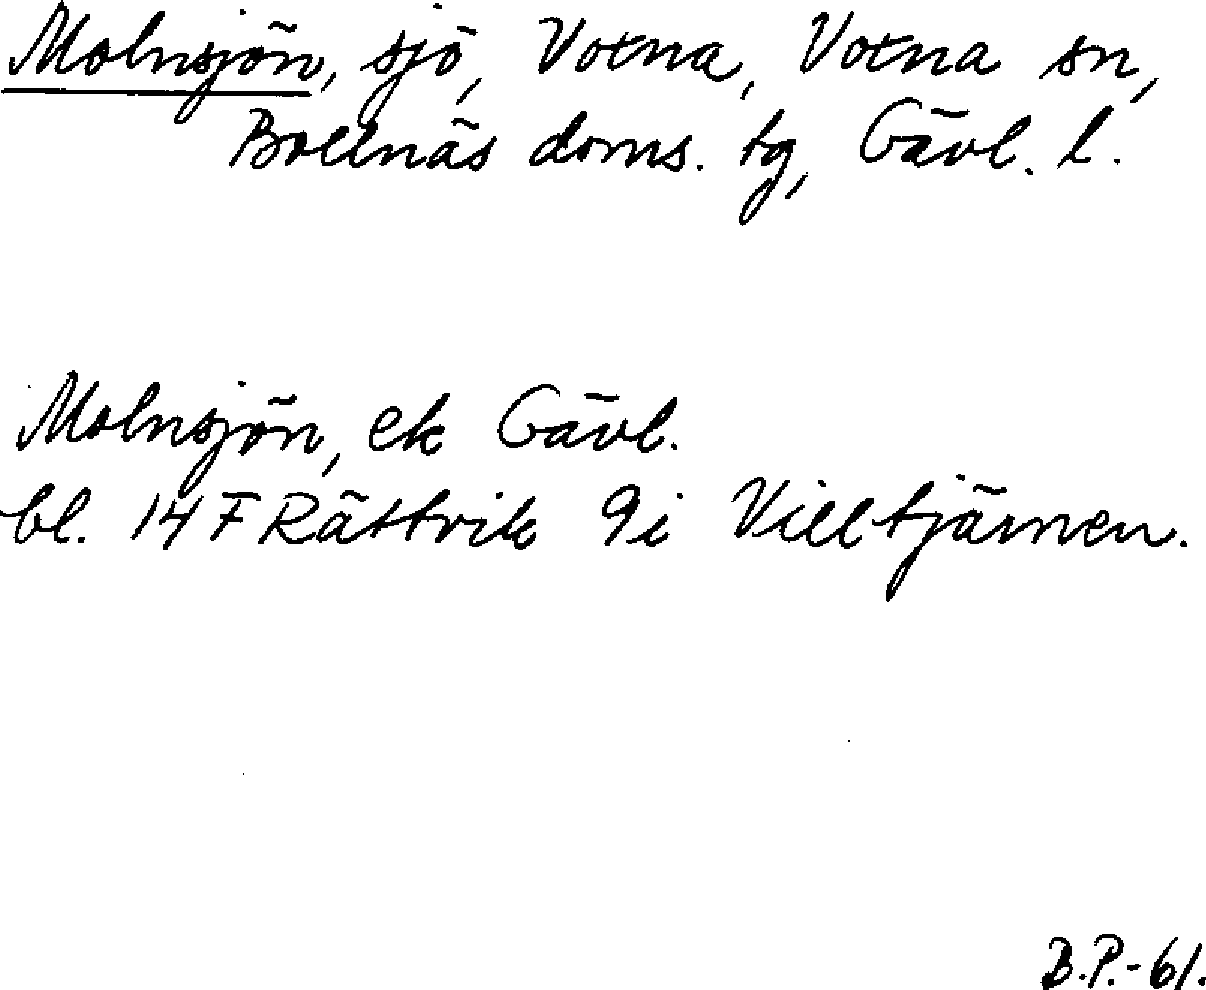 Molnsjön, sjö, Voxna, Voxna sn,
Bollnäs doms. tg, Gävl. l.
Molnsjön, ek Gävl.
bl. 14 F Rättvik 9i Villtjärnen.
B.P.-61.